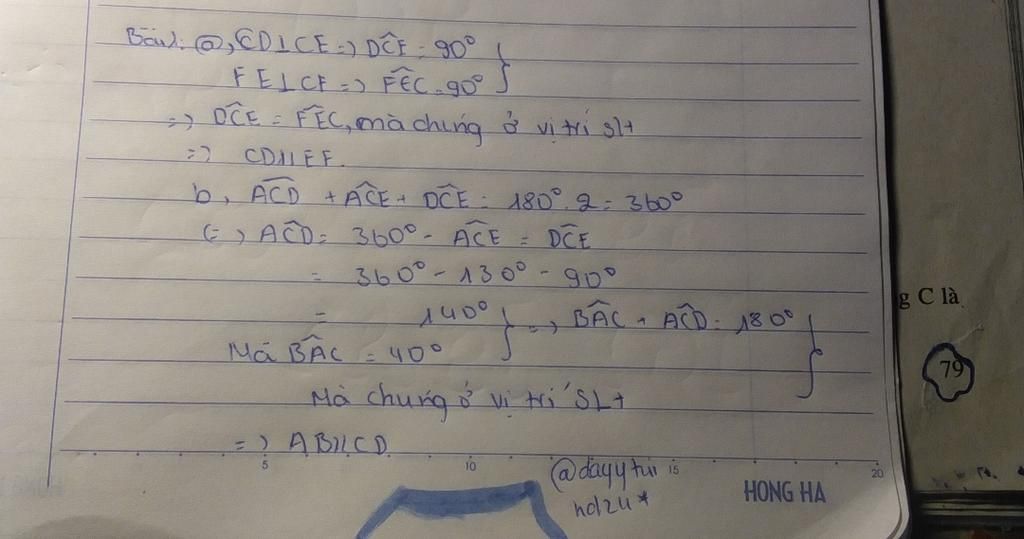 Bài 1: a, CD⊥CE => DĈE = 90°
FE⊥CE => FÊC = 90°
=> DĈE = FÊC, mà chúng ở vị trí slt
=> CD//EF.
b, AĈD + AĈE + DĈE = 180°. 2 = 360°
(=) AĈD = 360° - AĈE = DĈE
= 360° - 130° - 90°
= 140° => BÂC + AĈD = 180°
Mà BÂC = 40°
Mà chúng ở vị trí SLt
=> AB//CD.
5 10 15 20
@dayytui
nd2u*
HONG HA
g C là
79